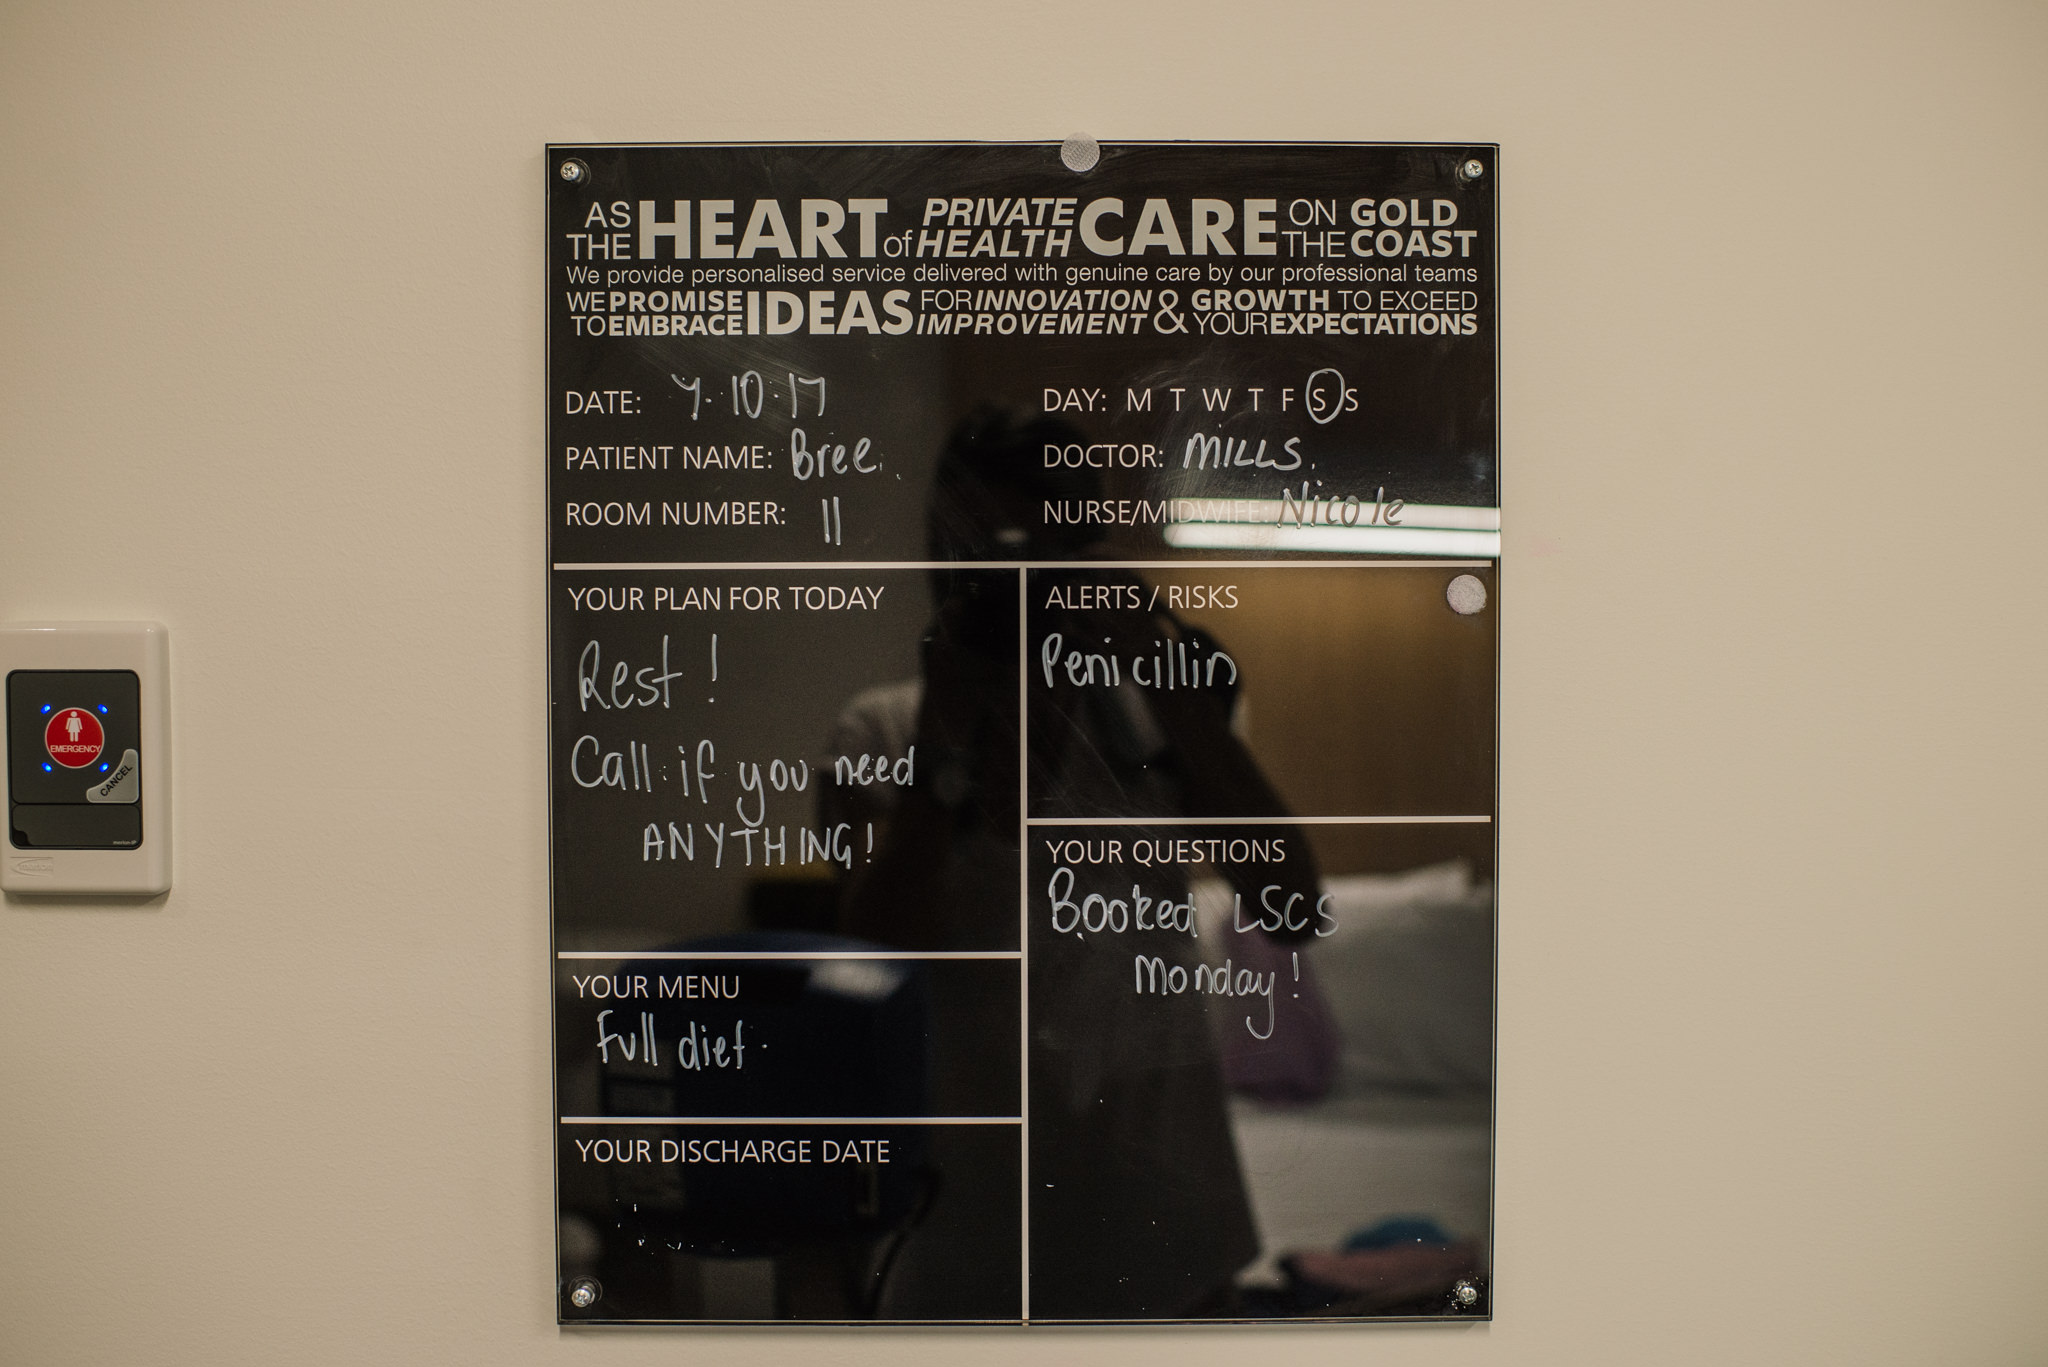 AS THE HEART of PRIVATE HEALTH CARE ON THE GOLD COAST
We provide personalised service delivered with genuine care by our professional teams
WE PROMISE TO EMBRACE IDEAS FOR INNOVATION IMPROVEMENT & GROWTH TO EXCEED YOUR EXPECTATIONS
DATE: 7.10.17
DAY: M T W T F S S
PATIENT NAME: Bree.
DOCTOR: MILLS.
ROOM NUMBER: 11
NURSE/MIDWIFE: Nicole
YOUR PLAN FOR TODAY
Rest!
Call if you need
ANYTHING!
YOUR MENU
Full diet.
YOUR DISCHARGE DATE
ALERTS / RISKS
Penicillin
YOUR QUESTIONS
Booked LSCS
Monday!
EMERGENCY
CANCEL